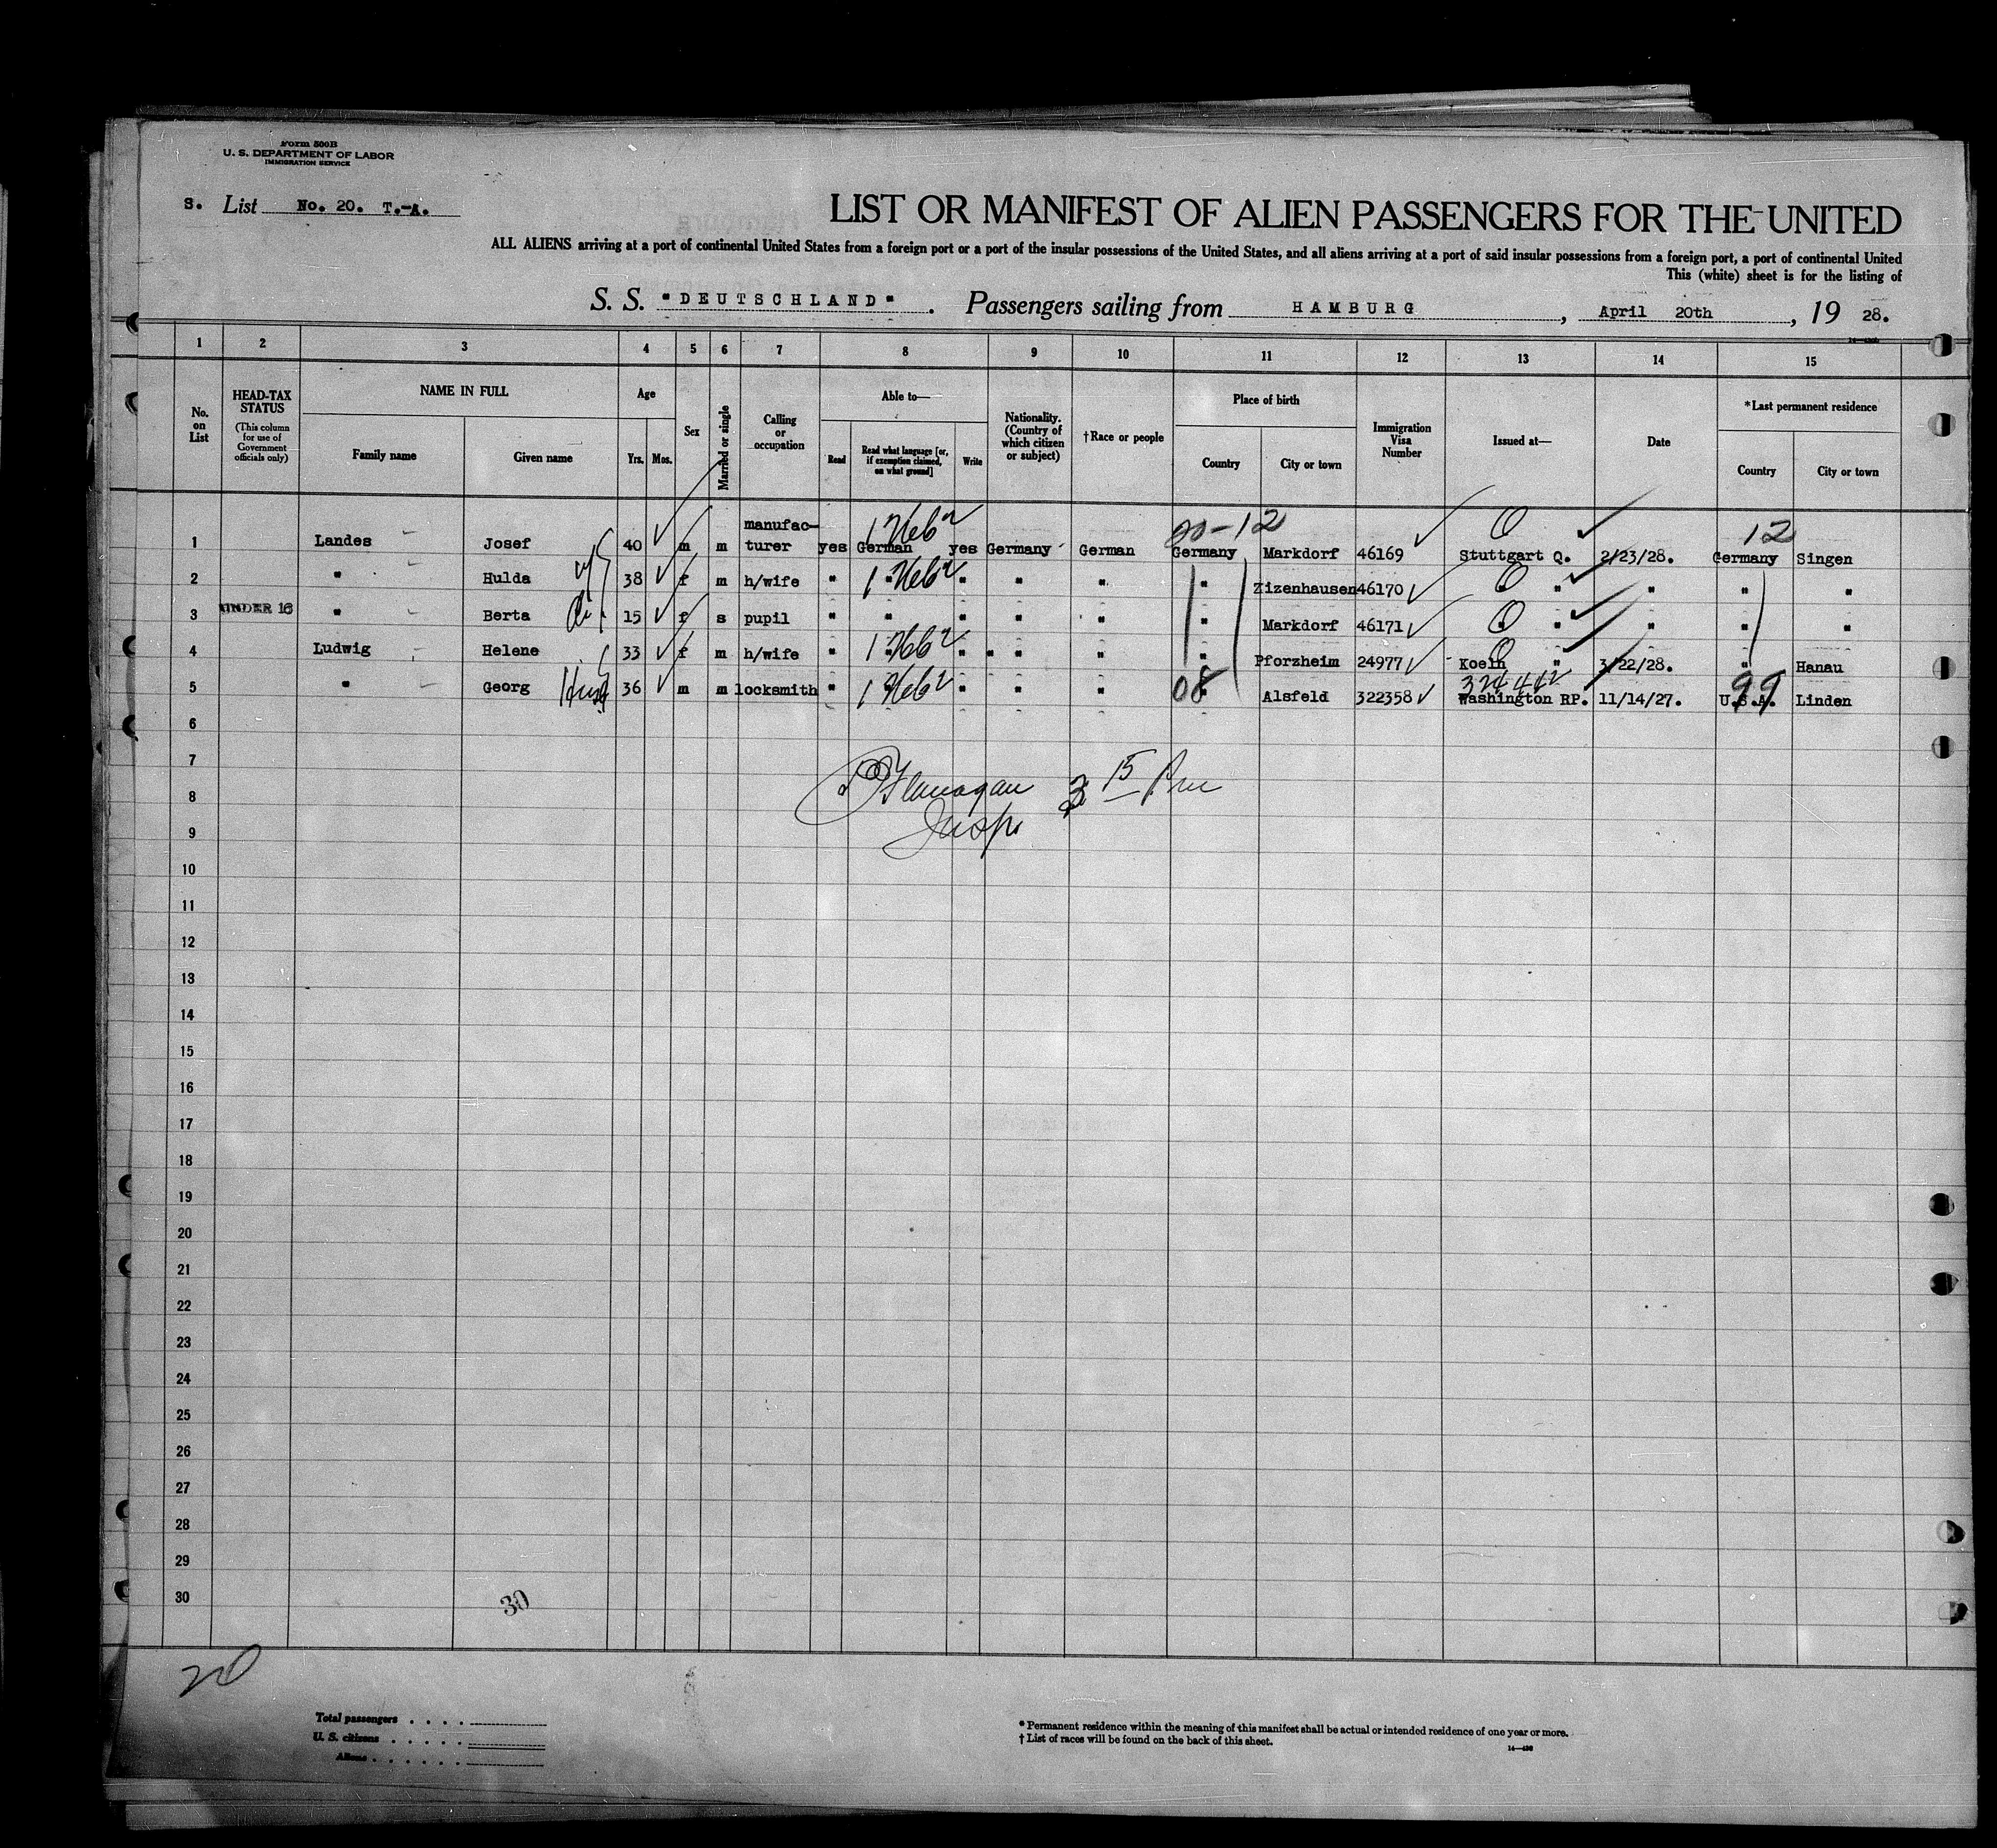 Form 500B
U. S. DEPARTMENT OF LABOR
IMMIGRATION SERVICE
S. List No. 20. T.-A.
LIST OR MANIFEST OF ALIEN PASSENGERS FOR THE UNITED
ALL ALIENS arriving at a port of continental United States from a foreign port or a port of the insular possessions of the United States, and all aliens arriving at a port of said insular possessions from a foreign port, a port of continental United
This (white) sheet is for the listing of
S. S. "DEUTSCHLAND". Passengers sailing from HAMBURG, April 20th, 19 28.
1 2 3 4 5 6 7 8 9 10 11 12 13 14 15
No. on List
HEAD-TAX STATUS
(This column for use of Government officials only)
NAME IN FULL
Family name Given name
Age
Yrs. Mos.
Sex
Married or single
Calling or occupation
Able to—
Read
Read what language [or, if exemption claimed, on what ground]
Write
Nationality. (Country of which citizen or subject)
†Race or people
Place of birth
Country City or town
Immigration Visa Number
Issued at—
Date
*Last permanent residence
Country City or town
20-12 12
1 Landes Josef 40 m m manufac-turer yes German yes Germany German Germany Markdorf 46169 Stuttgart Q. 2/23/28. Germany Singen
2 " Hulda 38 f m h/wife " " " " " " Zizenhausen 46170 " " " "
3 UNDER 16 " Berta 15 f s pupil " " " " " " Markdorf 46171 " " " "
4 Ludwig Helene 33 f m h/wife " " " " " " Pforzheim 24977 Koeln " 3/22/28. " Hanau
5 " Georg 36 m m locksmith " " " " " 08 " Alsfeld 322358 Washington RP. 11/14/27. U.S.A. 99 Linden
6
7
O'Flanagan 3 15 Pm
8
Insp.
9
10
11
12
13
14
15
16
17
18
19
20
21
22
23
24
25
26
27
28
29
30 30
20
Total passengers
U. S. citizens
Aliens
* Permanent residence within the meaning of this manifest shall be actual or intended residence of one year or more.
† List of races will be found on the back of this sheet.